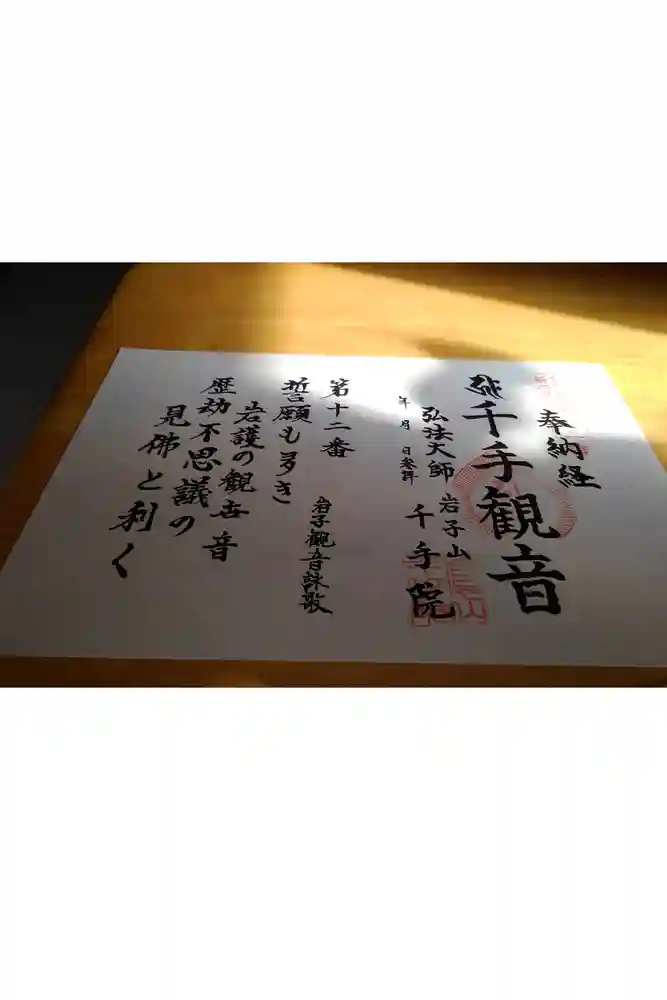 奉納経
千手観音
岩子山
弘法大師
千手院
年 月 日参詣
第十二番
岩子観音詠歌
誓願も多き
岩護の観世音
歴劫不思議の
見佛と利く